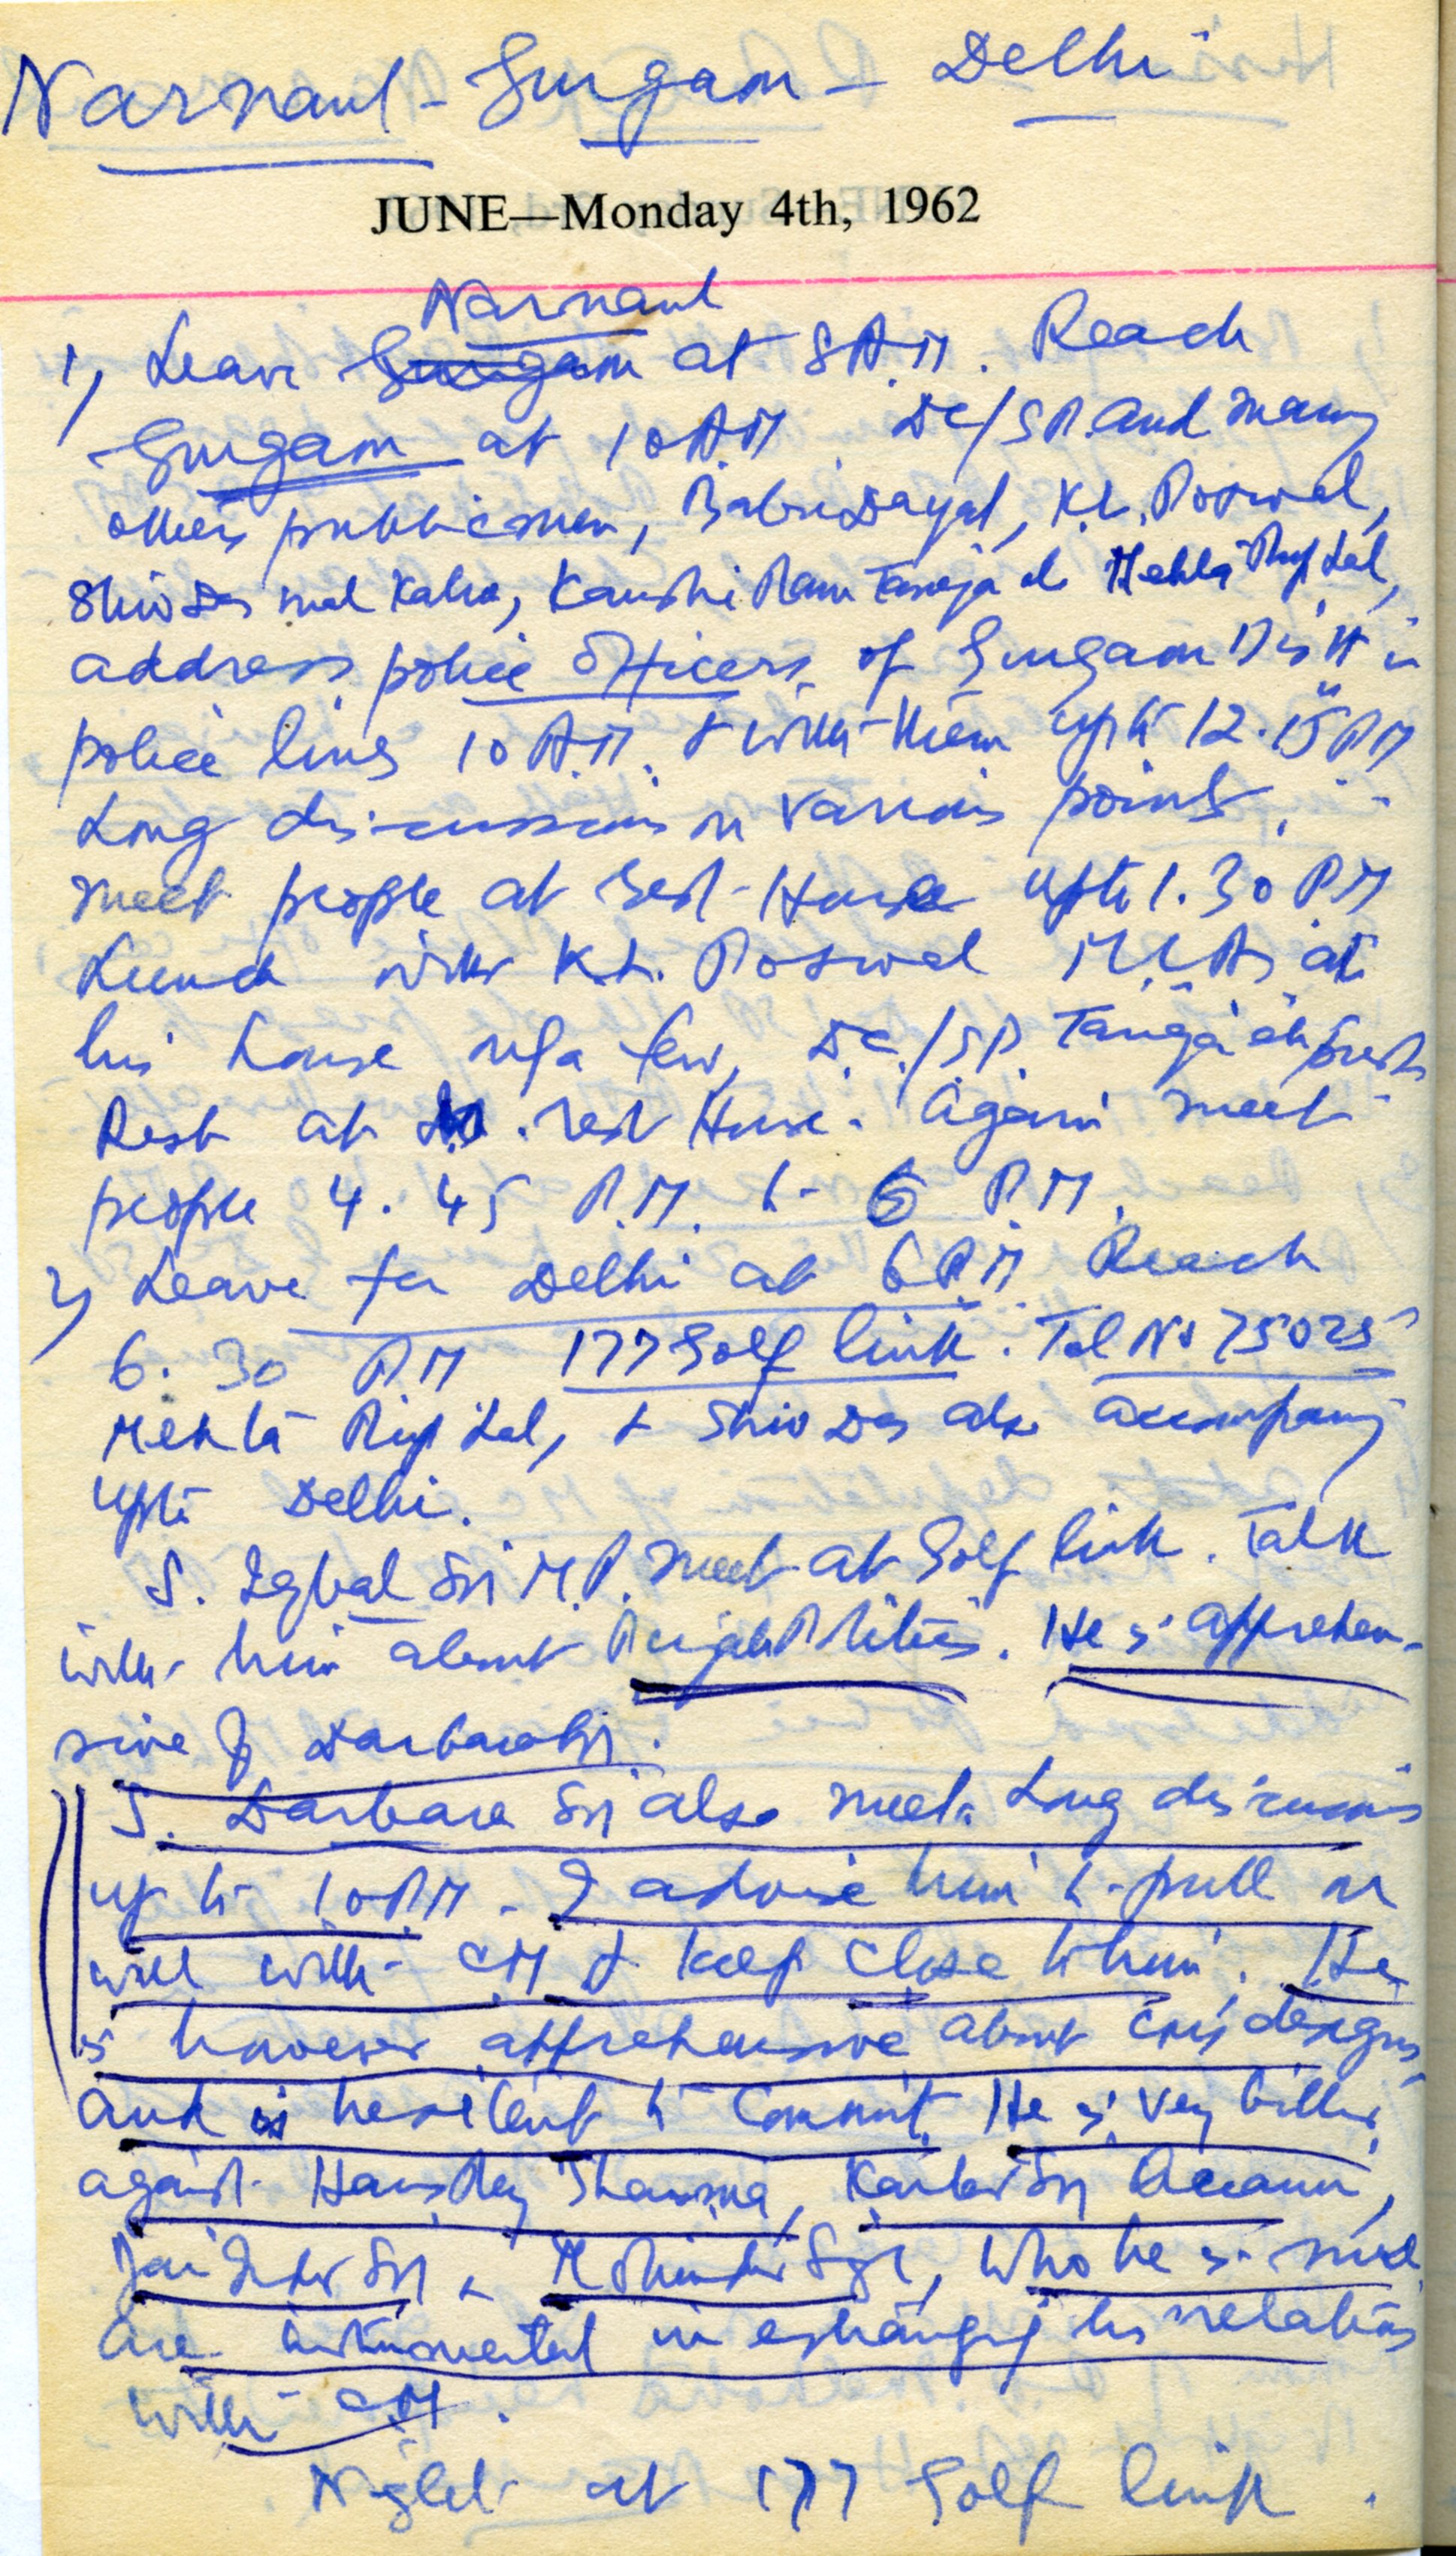 Narnaul - Gurgaon - Delhi
JUNE—Monday 4th, 1962
Narnaul
1) Leave Gurgaon at 8 A.M. Reach
Gurgaon at 10 A.M. DC/SP. and many
others publicmen, Dayal, K.L. Poswal,
Shiv Das mal Kalra, Ram Taneja etc Mehta Rup Lal,
address police officers of Gurgaon Distt in
police lines 10 A.M. & with them upto 12.15 PM
Long discussions on various points.
Meet people at Rest-House upto 1.30 PM
Lunch with K.L. Poswal M.L.A. at
his house a few, D.C./S.P. Taneja etc present
Rest at rest House. Again meet
people 4.45 P.M. to 6 P.M.
2) Leave for Delhi at 6 P.M Reach
6.30 P.M 177 Golf link. Tel No 75025
Mehta Rup Lal, & Shiv Das also accompany
upto Delhi.
S. Iqbal Sn M.P. meet at Golf link. Talk
with him about Punjab Politics. He is apprehen-
sive of Darbara Sn.
S. Darbara Sn also meets. Long discussions
up to 10 P.M. I advise him to pull on
well with CM & keep close to him. He
is however apprehensive about CM's designs
and is hesitent to commit. He is very bitter
against Hans Raj Sharma,
Jai Inder Sn & Mohinder Sn, who he is
are instrumental in estranging his relations
with CM.
Night at 177 Golf link.